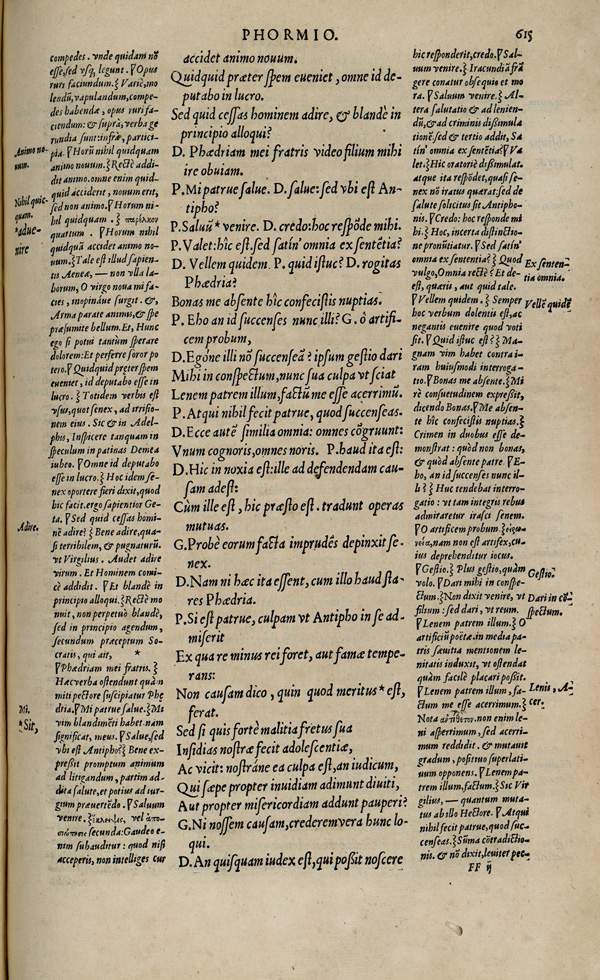 PHORMIO.
615
compedes. vnde quidam nõ
esse, sed vsq; legunt. ¶Opus
ruri faciundum. ⸹Variè, mo
lendũ, vapulandum, compe-
des habendæ, opus ruri fa-
ciendum: & suprà, verba ge
rundia sunt: infrà, partici-
pia. ¶Horũ nihil quidquam
animo nouum. ⸹Rectè addi-
dit animo. omne enim quid-
quid acciderit, nouum erit,
sed non animo. ¶Horum ni-
hil quidquam. ⸹
quartum. ¶Horum nihil
quidquã accidet animo no-
uum. ⸹Tale est illud sapien-
tis Aeneæ, — non vlla la-
borum, O virgo noua mi fa-
cies, inopináue surgit. &,
Arma parate animis, & spe
præsumite bellum. Et, Hunc
ego si potui tantum sperare
dolorem: Et perferre soror po
tero. ¶Quidquid præter spem
eueniet, id deputabo esse in
lucro. ⸹Totidem verbis est
vsus, quot senex, ad irrisio-
nem eius. Sic & in Adel-
phis, Inspicere tanquam in
speculum in patinas Demea
iubeo. ¶Omne id deputabo
esse in lucro. ⸹Hoc idem se-
nex oportere fieri dixit, quod
hic facit. ergo sapientior Ge-
ta. ¶Sed quid cessas homi-
nẽ adire? ⸹Bene adire, qua-
si terribilem, & pugnaturũ.
vt Virgilius. Audet adire
virum. Et Hominem comi-
cè addidit. ¶Et blandè in
principio alloqui. ⸹Rectè mo
nuit, non perpetuò blandè,
sed in principio agendum,
secundum præceptum So-
cratis, qui ait, *
¶Phædriam mei fratris. ⸹
Hæc verba ostendunt quàm
miti pectore suscipiatur Phæ
dria. ¶Mi patrue salue. ⸹Mi
vim blandimẽti habet. nam
significat, meus. ¶Salue, sed
vbi est Antipho? ⸹Bene ex-
pressit promptum animum
ad litigandum, partim ad-
dita salute, et potius ad iur-
gium præuertẽdo. ¶Saluum
venire. ⸹
secunda: Gaudeo e-
nim subauditur: quod nisi
acceperis, non intelliges cur
Animo no-
uum.
Nihil quic-
quam.
*adue-
nire
Adire.
Mi.
*Sit,
accidet animo nouum.
Quidquid præter spem eueniet, omne id de-
putabo in lucro.
Sed quid cessas hominem adire, & blandè in
principio alloqui?
D. Phædriam mei fratris video filium mihi
ire obuiam.
P. Mi patrue salue. D. salue: sed vbi est An-
tipho?
P. Saluũ * venire. D. credo: hoc respõde mihi.
P. Valet: hîc est. sed satin' omnia ex sentẽtia?
D. Vellem quidem. P. quid istuc? D. rogitas
Phædria?
Bonas me absente hîc confecistis nuptias.
P. Eho an id succenses nunc illi? G. ô artifi-
cem probum,
D. Egóne illi nõ succenseã? ipsum gestio dari
Mihi in conspectum, nunc sua culpa vt sciat
Lenem patrem illum, factũ me esse acerrimũ.
P. Atqui nihil fecit patrue, quod succenseas.
D. Ecce autẽ similia omnia: omnes cõgruunt:
Vnum cognoris, omnes noris. P. haud ita est:
D. Hic in noxia est: ille ad defendendam cau-
sam adest:
Cùm ille est, hic præsto est. tradunt operas
mutuas.
G. Probè eorum facta imprudẽs depinxit se-
nex.
D. Nam ni hæc ita essent, cum illo haud sta-
res Phædria.
P. Si est patrue, culpam vt Antipho in se ad-
miserit
Ex qua re minus rei foret, aut famæ tempe-
rans:
Non causam dico, quin quod meritus * est,
ferat.
Sed si quis fortè malitia fretus sua
Insidias nostræ fecit adolescentiæ,
Ac vicit: nostráne ea culpa est, an iudicum,
Qui sæpe propter inuidiam adimunt diuiti,
Aut propter misericordiam addunt pauperi?
G. Ni nossem causam, crederem vera hunc lo-
qui.
D. An quisquam iudex est, qui possit noscere
hic responderit, credo. ¶Sal-
uum venire. ⸹Iracundiã frã
gere conatur obsequio et mo
ra. ¶Saluum venire. ⸹Al-
tera salutatio & ad lenien-
dũ, & ad criminis dissimula
tionẽ. sed & tertio addit, Sa
tin' omnia ex sentẽtia? ¶Va
let. ⸹Hîc oratoriè dissimulat.
atque ita respõdet, quasi se-
nex nõ iratus quærat: sed de
salute solicitus sit Antipho-
nis. ¶Credo: hoc responde mi
hi. ⸹Hoc, incerta distinctio-
ne pronũtiatur. ¶Sed satin'
omnia ex sententia? ⸹Quod
vulgo, Omnia rectè? Et de-
est, quæris, aut quid tale.
¶Vellem quidem. ⸹Semper
hoc verbum dolentis est, ac
negantis euenire quod voti
sit. ¶Quid istuc est? ⸹Ma-
gnam vim habet contra i-
ram huiusmodi interroga-
tio. ¶Bonas me absente. ⸹Mi
rè consuetudinem expressit,
dicendo Bonas. ¶Me absen-
te hîc confecistis nuptias. ⸹
Crimen in duobus esse de-
monstrat: quòd non bonas,
& quòd absente patre. ¶E-
ho, an id succenses nunc il-
li? ⸹Huc tendebat interro-
gatio: vt tam integris rebus
admiraretur irasci senem.
¶O artificem probum. ⸹
nam non est artifex, cu-
ius deprehenditur iocus.
¶Gestio. ⸹Plus gestio, quàm
volo. ¶Dari mihi in conspe-
ctum. ⸹Non dixit venire, vt
filium: sed dari, vt reum.
¶Lenem patrem illum. ⸹O
artificiũ poëtæ. in media pa-
tris sæuitia mentionem le-
nitatis induxit, vt ostendat
quàm facilè placari possit.
¶Lenem patrem illum, fa-
ctum me esse acerrimum. ⸹
Nota non enim leni
asperrimum, sed acerri-
mum reddidit. & mutauit
gradum, positiuo superlati-
uum opponens. ¶Lenem pa-
trem illum, factum. ⸹Sic Vir
gilius, — quantum muta-
tus ab illo Hectore. ¶Atqui
nihil fecit patrue, quod suc-
censeas. ⸹Sũma cõtradictio-
nis. & nõ dixit, leuiter pec-
Ex senten-
tia omnia.
Vellẽ quidẽ
Gestio.
Dari in cõ-
spectum.
Lenis, A-
cer.
FF ij